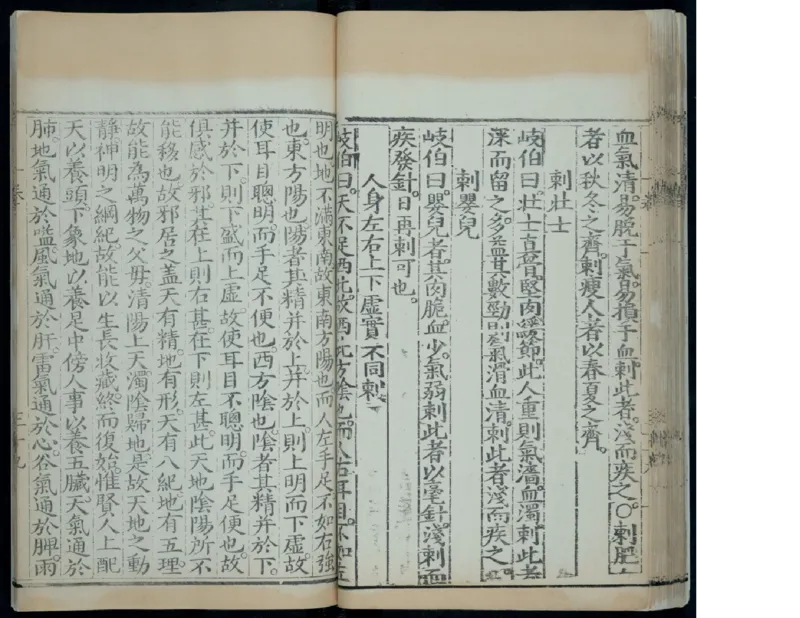 血氣清。易脫于氣。易損于血。刺此者。淺而疾之。○刺肥人
者以秋冬之齊。刺瘦人者以春夏之齊。
刺壯士
岐伯曰。壯士真骨。堅肉緩節。此人重則氣濇血濁。刺此者
深而留之。多益其數。勁則氣滑血清。刺此者淺而疾之。
刺嬰兒
岐伯曰。嬰兒者。其肉脆血少。氣弱。刺此者以毫針。淺刺而
疾發針。日再刺可也。
人身左右上下虛實不同刺
岐伯曰。天不足西北。故西北方陰也。而人右耳目。不如左
明也。地不滿東南。故東南方陽也。而人左手足不如右強
也。東方陽也。陽者其精并於上。并於上。則上明而下虛。故
使耳目聰明。而手足不便也。西方陰也。陰者其精并於下。
并於下。則下盛而上虛。故使耳目不聰明。而手足便也。故
俱感於邪。其在上則右甚。在下則左甚。此天地陰陽所不
能移也。故邪居之。蓋天有精。地有形。天有八紀。地有五理
故能為萬物之父母。清陽上天。濁陰歸地。是故天地之動
靜。神明之綱紀。故能以生長收藏。終而復始。惟賢人上配
天以養頭。下象地以養足。中傍人事以養五臟。天氣通於
肺。地氣通於嗌。風氣通於肝。雷氣通於心。谷氣通於脾。雨